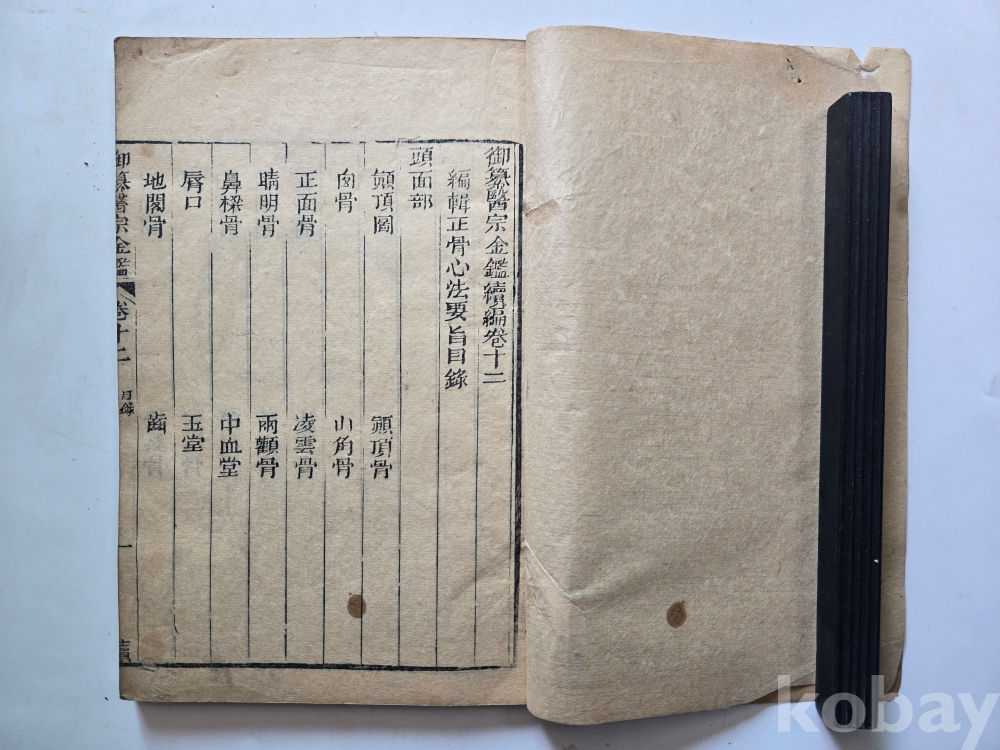 御纂醫宗金鑑續編卷十二
編輯正骨心法要旨目錄
頭面部
顛頂圖　顛頂骨
囟骨　山角骨
正面骨　凌雲骨
睛明骨　兩顴骨
鼻樑骨　中血堂
唇口　玉堂
地閣骨　齒
御纂醫宗金鑑　卷十二　目錄　一
kobay